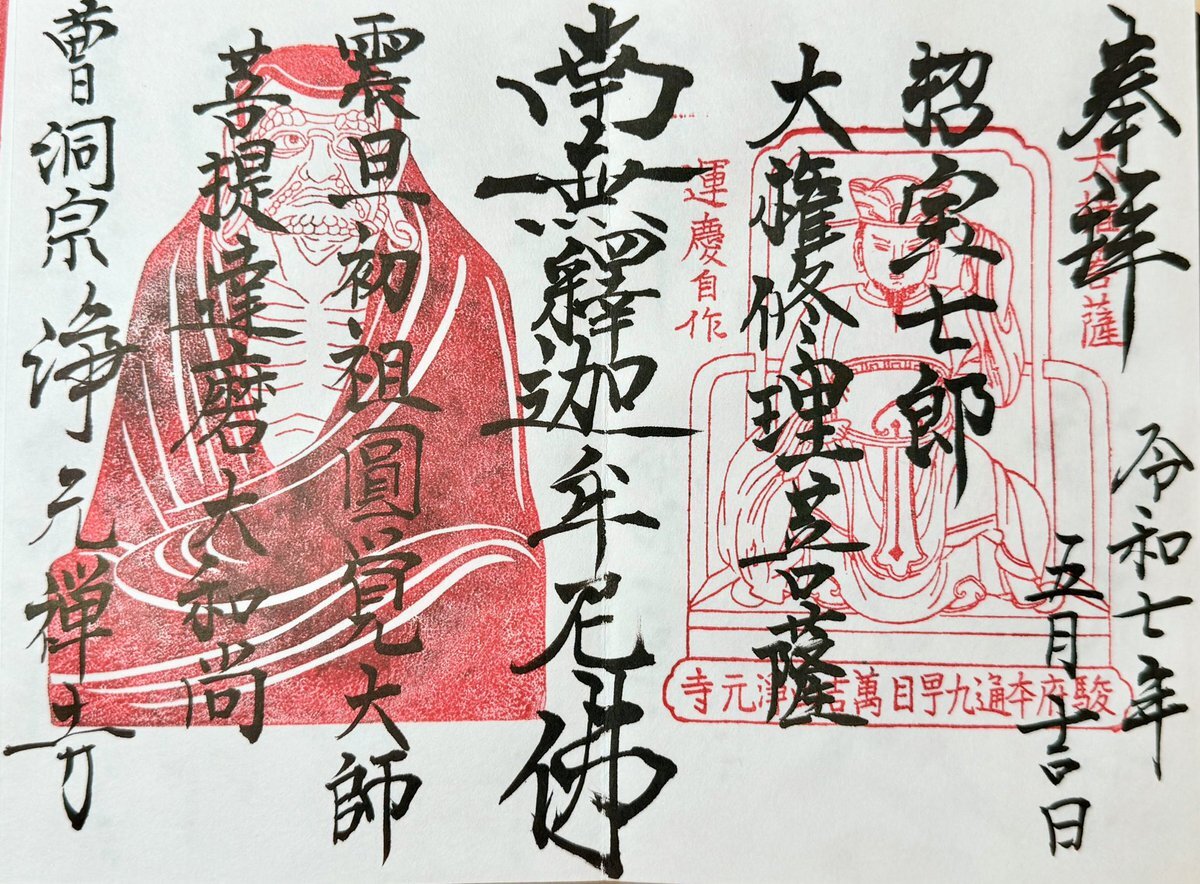 奉拜
令和七年
五月吉日
招宝七郎
大権修理菩薩
南無釋迦牟尼佛
震旦初祖圓覚大師
菩提達磨大和尚
曹洞宗浄元禅寺
大権菩薩
運慶自作
駿府本通九早目萬吉山淨元寺